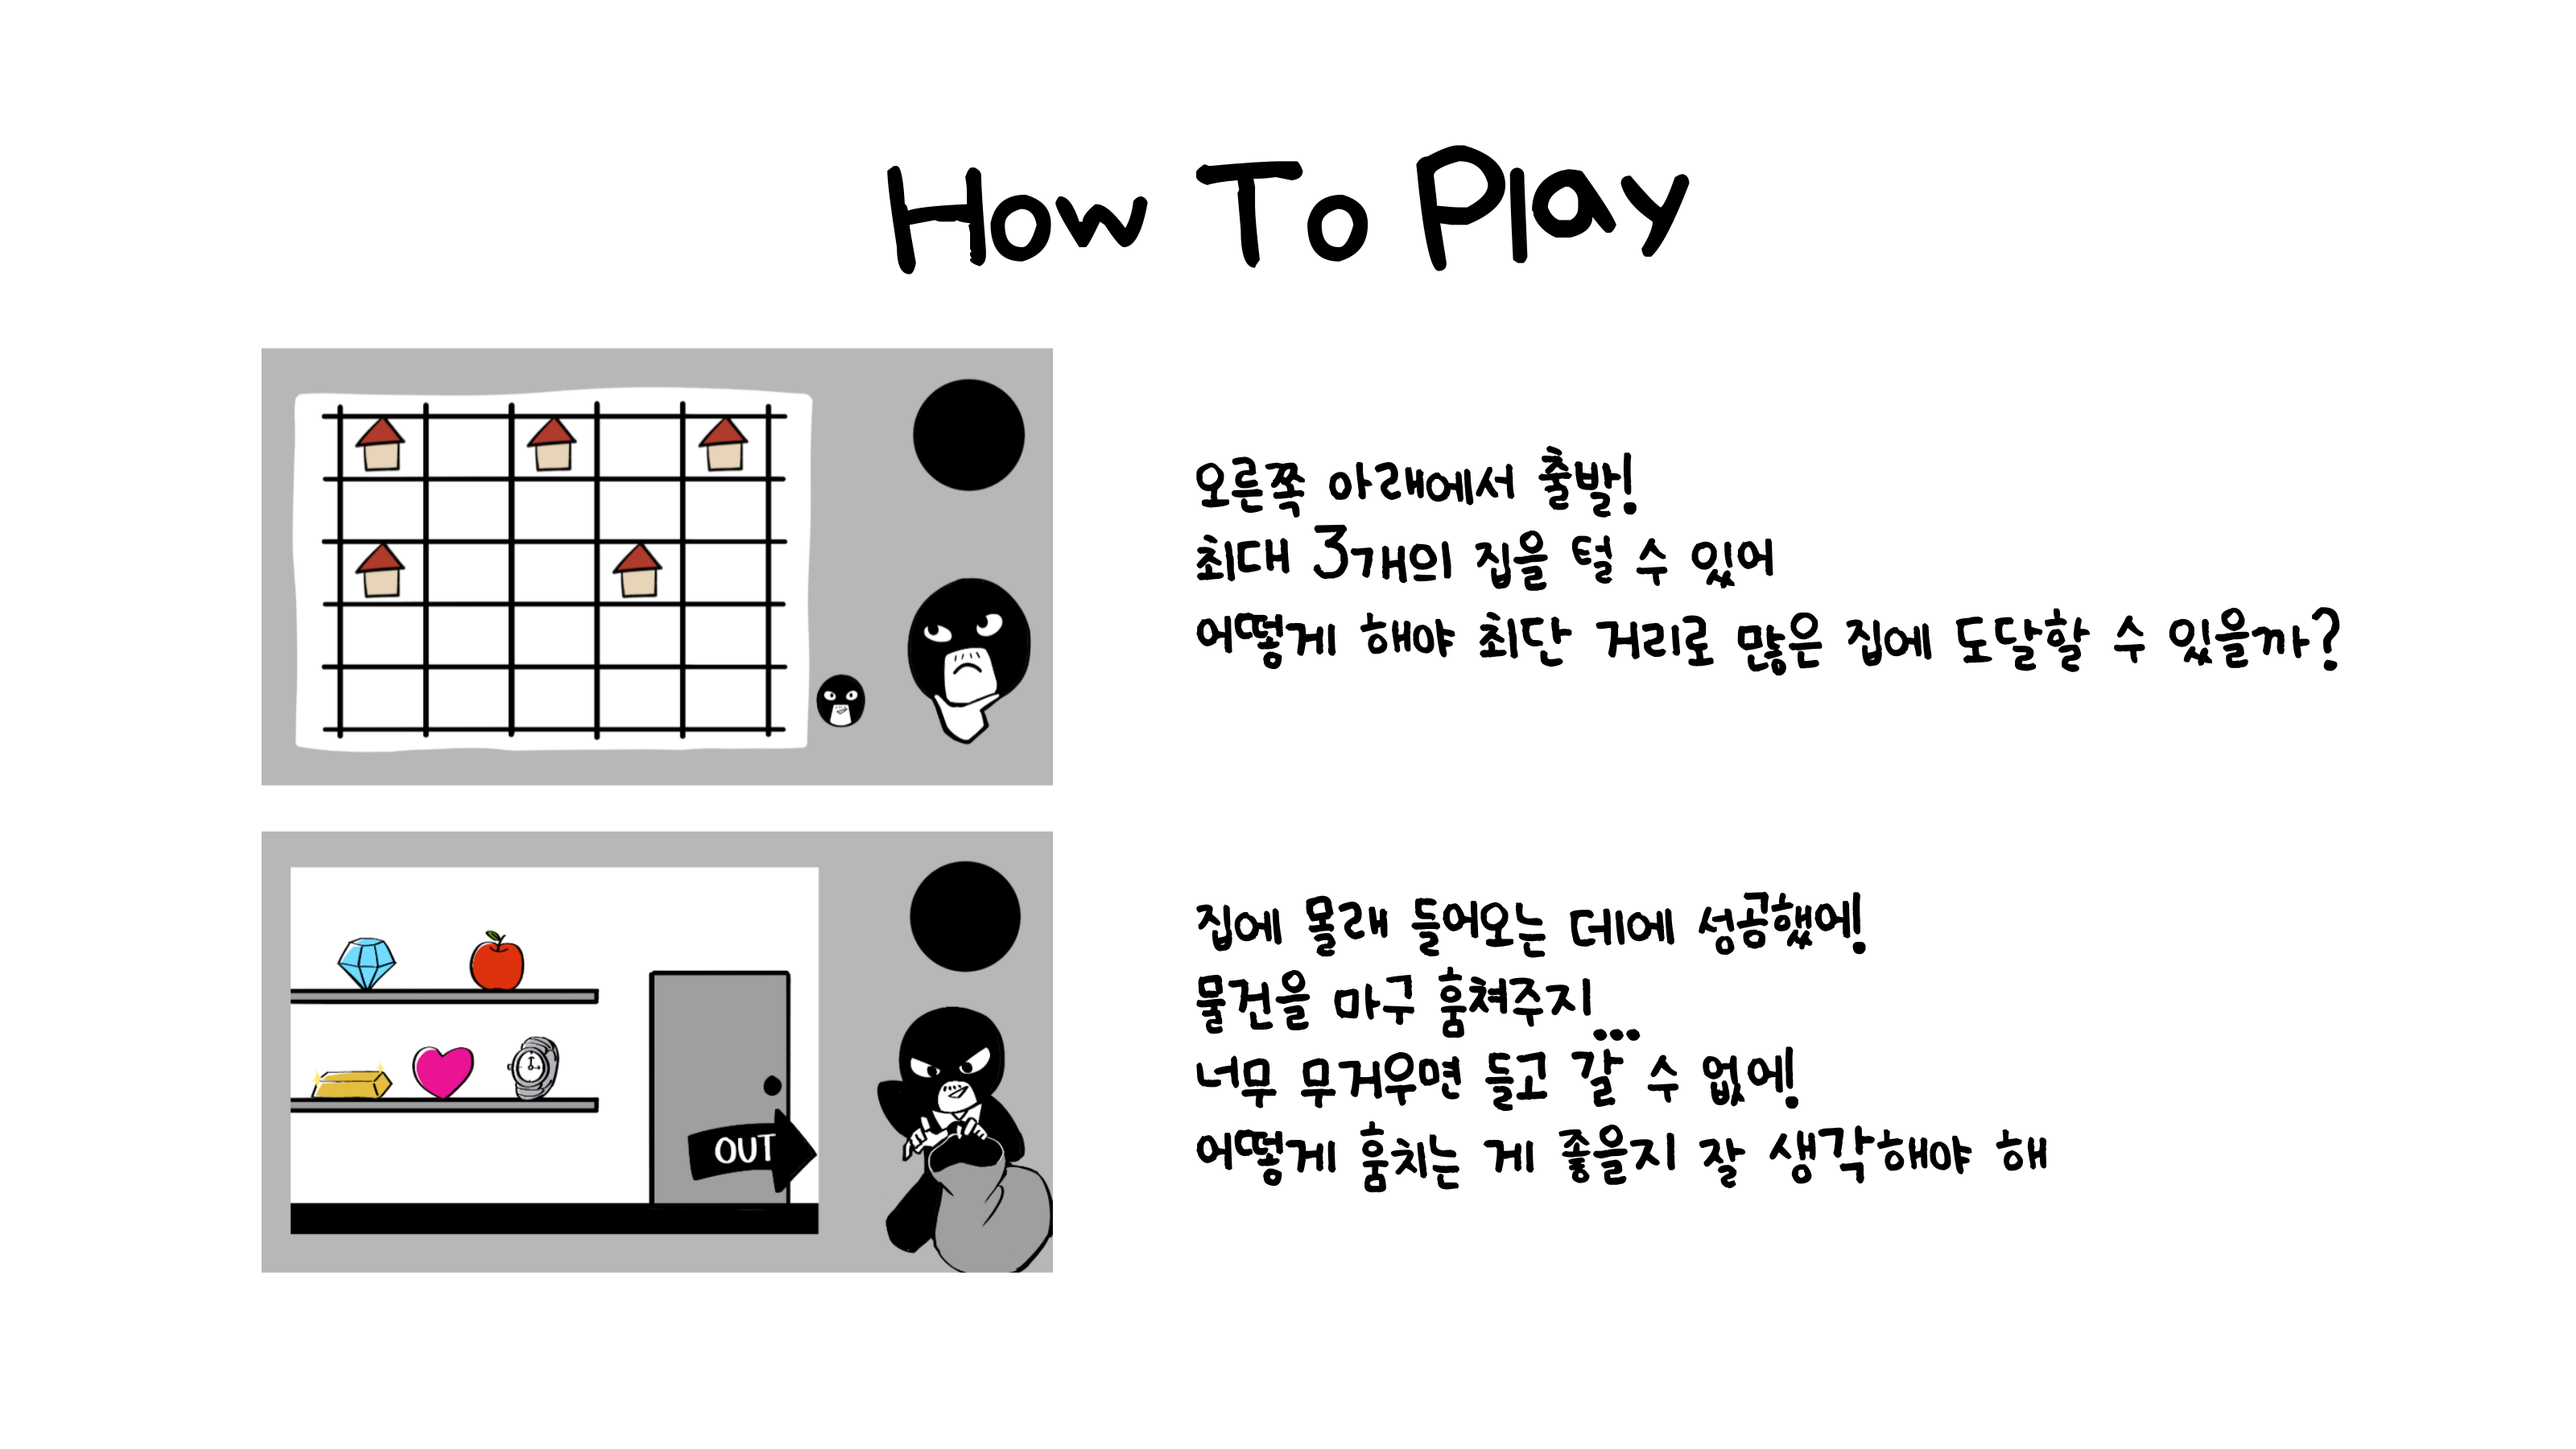 How To Play
오른쪽 아래에서 출발!
최대 3개의 집을 털 수 있어
어떻게 해야 최단 거리로 많은 집에 도달할 수 있을까?
집에 몰래 들어오는 데에 성공했어!
물건을 마구 훔쳐주지...
너무 무거우면 들고 갈 수 없어!
어떻게 훔치는 게 좋을지 잘 생각해야 해
OUT